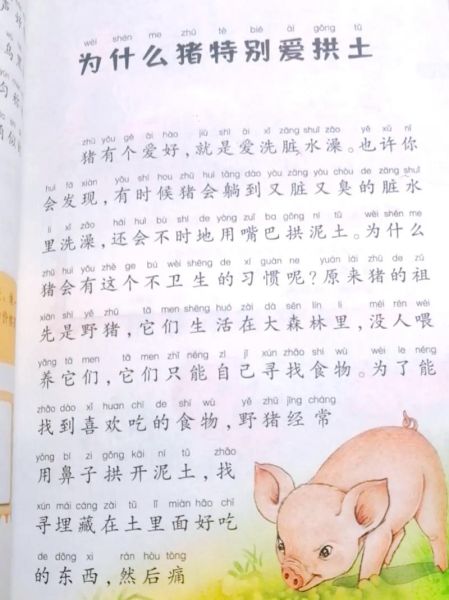 wèi shén me zhū tè bié ài gǒng tǔ
为什么猪特别爱拱土
zhū yǒu gè ài hào jiù shì ài xǐ zāng shuǐ zǎo yě xǔ nǐ
猪有个爱好，就是爱洗脏水澡。也许你
huì fā xiàn yǒu shí hou zhū huì tǎng dào yòu zāng yòu chòu de zāng shuǐ
会发现，有时候猪会躺到又脏又臭的脏水
lǐ xǐ zǎo hái huì bù shí de yòng zuǐ ba gǒng ní tǔ wèi shén me
里洗澡，还会不时地用嘴巴拱泥土。为什么
zhū huì yǒu zhè ge bú wèi shēng de xí guàn ne yuán lái zhū de zǔ
猪会有这个不卫生的习惯呢？原来猪的祖
xiān shì yě zhū tā men shēng huó zài dà sēn lín lǐ méi rén wèi
先是野猪，它们生活在大森林里，没人喂
yǎng tā men tā men zhǐ néng zì jǐ xún zhǎo shí wù wèi le néng
养它们，它们只能自己寻找食物。为了能
zhǎo dào xǐ huan chī de shí wù yě zhū jīng cháng
找到喜欢吃的食物，野猪经常
yòng bí zi gǒng kāi ní tǔ zhǎo
用鼻子拱开泥土，找
xún mái cáng zài tǔ lǐ miàn hǎo chī
寻埋藏在土里面好吃
de dōng xi rán hòu tòng
的东西，然后痛